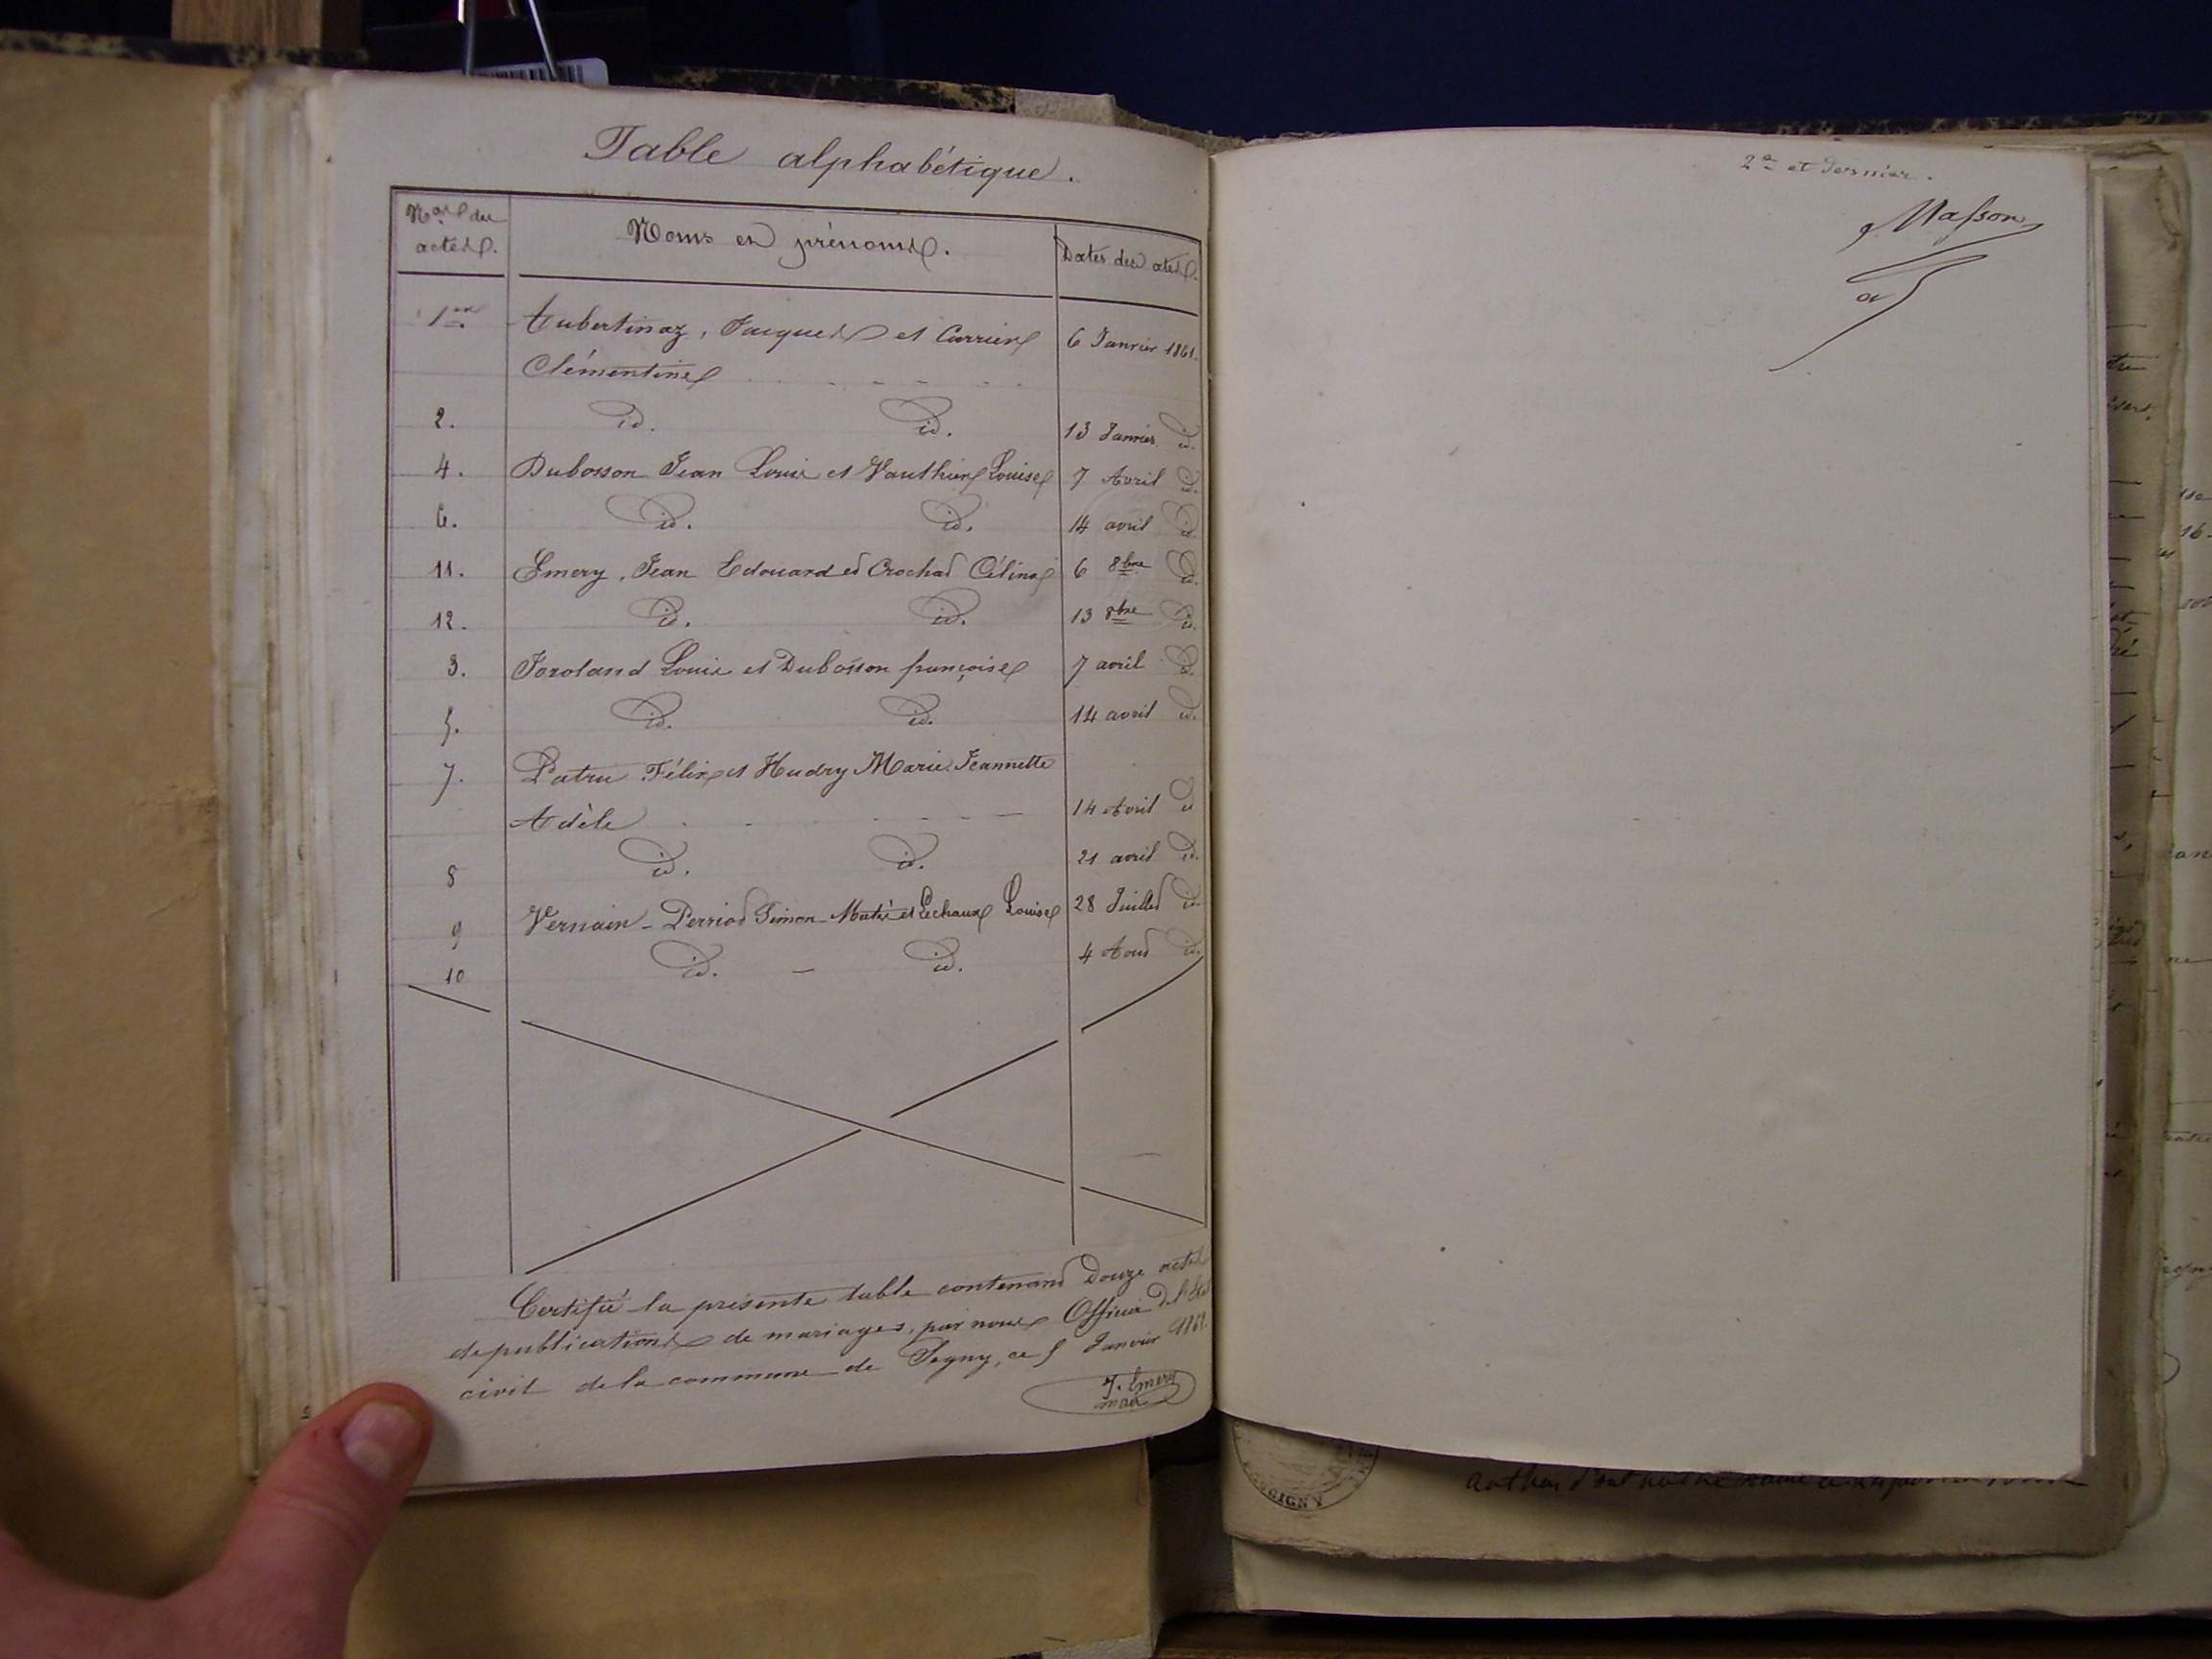 Table alphabétique.
Nos des actes. Noms et prénoms. Dates des actes.
1er Aubertinaz, Jacques et Carrier 6 Janvier 1861.
Clémentine
2. id. id. 13 Janvier id.
4. Dubosson Jean Louis et Vauthier Louise 7 Avril id.
6. id. id. 14 avril id.
11. Emery, Jean Edouard et Crochat Célina 6 8bre id.
12. id. id. 13 8bre id.
3. Joroland Louis et Dubosson françoise 7 avril id.
5. id. id. 14 avril id.
7. Patru Félix et Hudry Marie Jeannette
Adèle 14 Avril id
8 id. id. 21 avril id.
9 Vernain - Perriod Simon et Lechaux Louise 28 Juillet id.
10 id. - id. 4 Aout id.
Certifié la présente table contenant Douze actes
de publications de mariages, par nous Officier de l'Etat
civil de la commune de Segny, ce 5 Janvier
J. Emery
maire
2e et dernier.
Masson